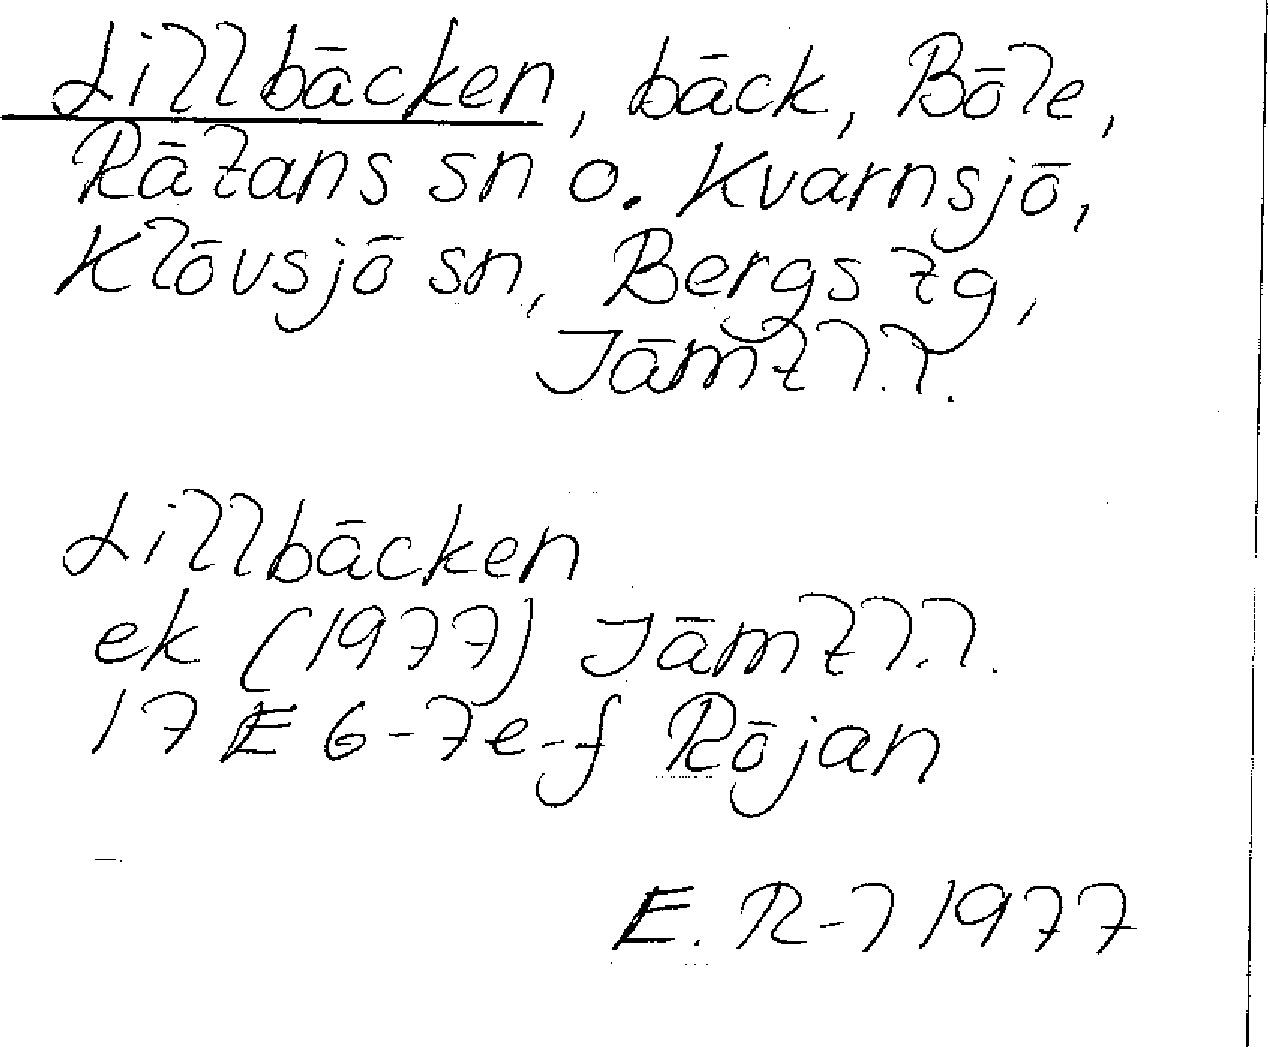 Lillbäcken, bäck, Böle,
Rätans sn o. Kvarnsjö,
Klövsjö sn, Bergs tg,
Jämtl.l.
Lillbäcken
ek (1977) Jämtl.l.
17 E 6-7e-f Röjan
E. R-l 1977